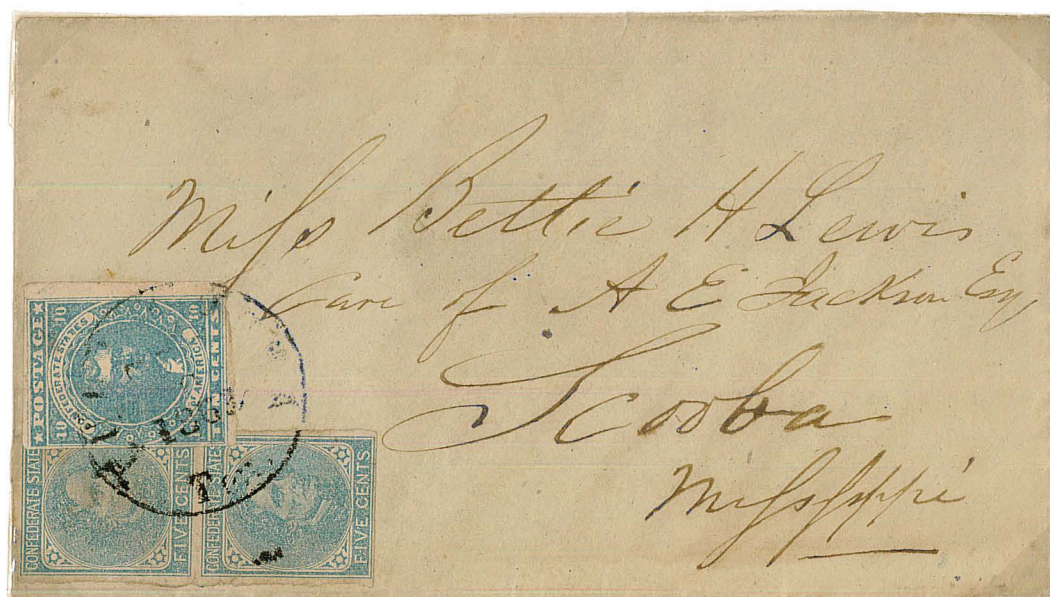 Miss Bettie H Lewis
Care of A E Jackson Esq,
Scooba
Mississippi
10 POSTAGE 10
CONFEDERATE STATES OF AMERICA
CENTS
CONFEDERATE STATE
FIVE CENTS
CONFEDERATE STATES
FIVE CENTS